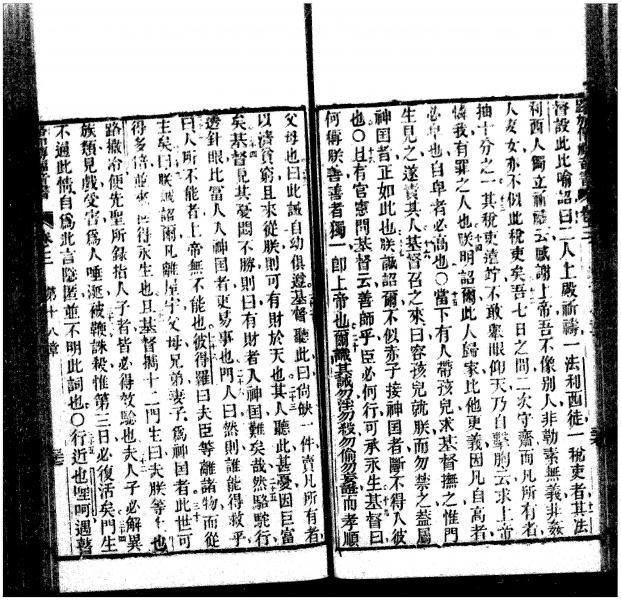 督設此比喻詔曰二人上殿祈禱一法利西徒一稅吏者其法
利西人獨立祈禱云感謝上帝吾不像别人非勒索無義非姦
人妻女亦不似此稅吏矣吾七日之間二次守齋而凡所有者
抽十分之一其稅吏遠竚不敢舉眼仰天乃自擊胸云求上帝
憐我有罪之人也朕明詔爾此人歸家比他更義因凡自高者
必卑也自卑者必高也〇當下有人帶孩兒求基督撫之惟門
生見之遂責其人基督召之來曰容孩兒就朕而勿禁之蓋屬
神國者正如此也朕誠詔爾不似赤子接神國者斷不得入彼
也〇且有官憲問基督云善師乎臣必何行可承永生基督曰
何傳朕善善者獨一卽上帝也爾識其誡勿淫勿殺勿偷勿妄證而孝順
父母也曰此誡自幼俱遵基督聽此曰尚缺一件賣凡所有者
以濟貧窮且來從朕則可有財於天也其人聽此甚憂因巨富
矣基督見其憂悶不勝則曰有財者入神國難矣哉然駱駝行
透針眼比富人入神國者更易事也門人曰然則誰能得救乎
曰人所不能者上帝無不能也彼得羅曰夫臣等離諸物而從
主矣曰朕誠詔爾凡離屋宇父母兄弟妻子爲神國者此世可
得多倍並來世得永生也且基督攜十二門生曰夫朕等上
路撒冷便先聖所錄指人子者皆必得效驗也夫人子必解異
族類見戲受害爲人唾涎被鞭誅殺惟第三日必復活矣門生
不通此情自爲此言隐匿並不明此詞也〇行近也哩呵遇瞽
第十八章